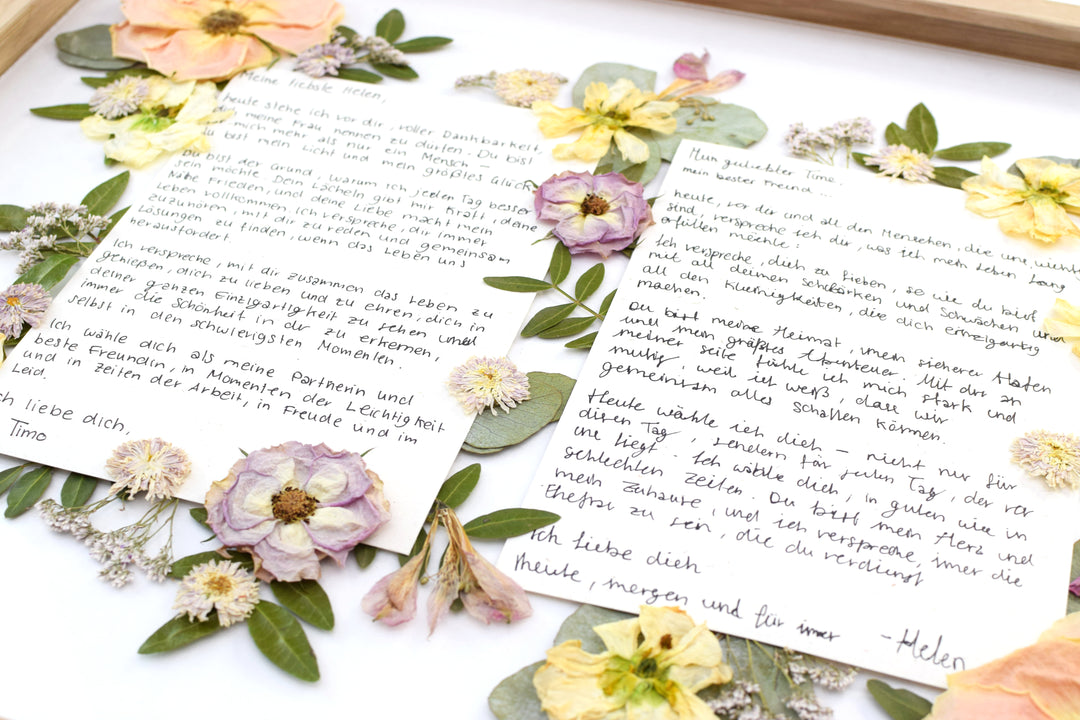 Meine liebste Helen,
heute stehe ich vor dir, voller Dankbarkeit,
meine Frau nennen zu dürfen. Du bist
mich mehr als nur ein Mensch –
bist mein Licht und mein größtes Glück.
Du bist der Grund, warum ich jeden Tag besser
sein möchte. Dein Lächeln gibt mir Kraft, deine
Nähe Frieden, und deine Liebe macht mein
Leben vollkommen. Ich verspreche, dir immer
zuzuhören, mit dir zu reden und gemeinsam
Lösungen zu finden, wenn das Leben uns
herausfordert.
Ich verspreche, mit dir zusammen das Leben zu
genießen, dich zu lieben und zu ehren, dich in
deiner ganzen Einzigartigkeit zu sehen und
immer die Schönheit in dir zu erkennen,
selbst in den schwierigsten Momenten.
Ich wähle dich als meine Partnerin und
beste Freundin, in Momenten der Leichtigkeit
und in Zeiten der Arbeit, in Freude und im
Leid.
Ich liebe dich,
Timo
Mein geliebter Timo,
mein bester Freund..
heute, vor dir und all den Menschen, die uns wichtig
sind, verspreche ich dir, was ich mein Leben lang
erfüllen möchte:
Ich verspreche, dich zu lieben, so wie du bist,
mit all deinen Stärken und Schwächen und
all den Kleinigkeiten, die dich einzigartig
machen.
Du bist meine Heimat, mein sicherer Hafen
und mein größtes Abenteuer. Mit dir an
meiner Seite fühle ich mich stark und
mutig, weil ich weiß, dass wir
gemeinsam alles schaffen können.
Heute wähle ich dich – nicht nur für
diesen Tag, sondern für jeden Tag, der vor
uns liegt. Ich wähle dich, in guten wie in
schlechten Zeiten. Du bist mein Herz und
mein Zuhause, und ich verspreche, immer die
Ehefrau zu sein, die du verdienst
Ich liebe dich
Heute, morgen und für immer
- Helen